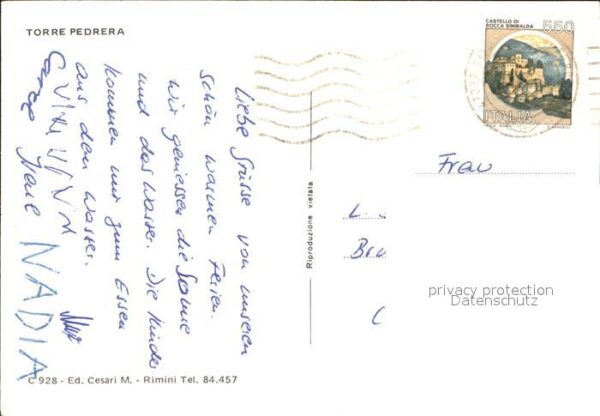 TORRE PEDRERA
Liebe Grüsse von unseren
schön warmen Ferien.
Wir geniessen die Sonne
und das Wasser. Die Kinder
kommen nur zum Essen
aus dem Wasser.
NADIA
C 928 - Ed. Cesari M. - Rimini Tel. 84.457
Riproduzione vietata
CASTELLO DI
ROCCA SINIBALDA
550
ITALIA
Frau
L
Bru
C
privacy protection
Datenschutz